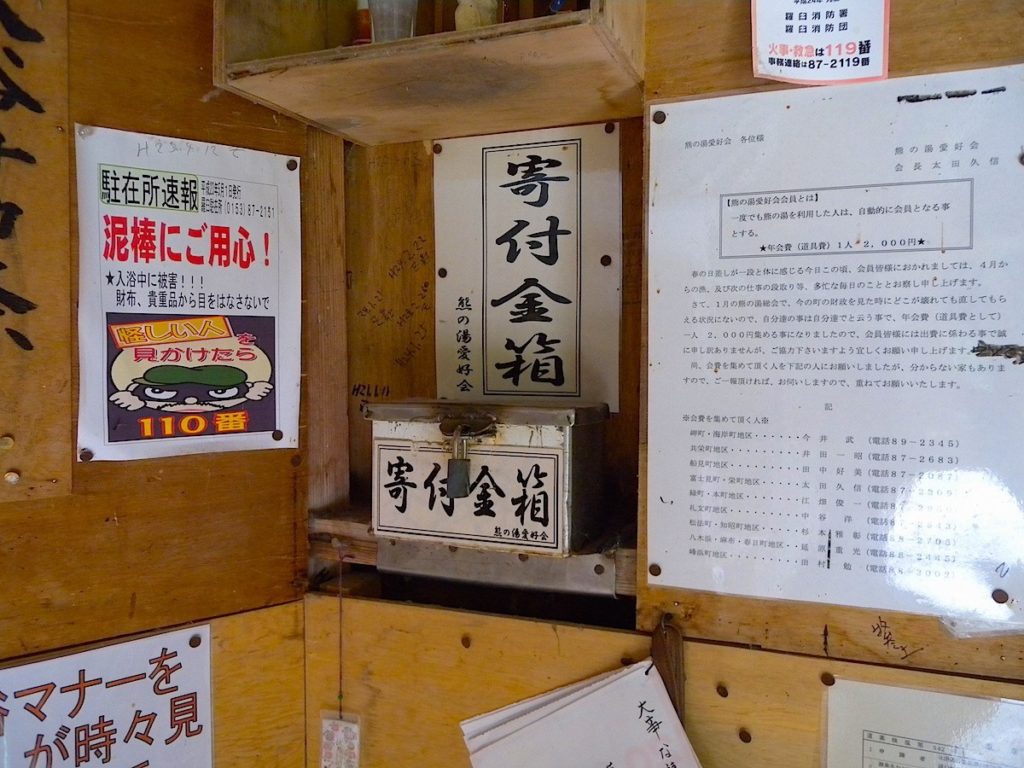 駐在所速報
平成22年5月1日発行
羅臼駐在所 (0153) 87-2151
泥棒にご用心!
★入浴中に被害!!!
財布、貴重品から目をはなさないで
怪しい人を
見かけたら
110番
寄付金箱
熊の湯愛好会
寄付金箱
熊の湯愛好会
羅臼消防署
羅臼消防団
火事・救急は119番
事務連絡は87-2119番
熊の湯愛好会 各位様
熊の湯愛好会
会長 太田久信
【熊の湯愛好会会員とは】
一度でも熊の湯を利用した人は、自動的に会員となる事
とする。
★年会費(道具費)1人 2,000円★
春の日差しが一段と体に感じる今日この頃、会員皆様におかれましては、4月か
らの漁、及び次の仕事の段取り等、多忙な毎日のこととお察し申し上げます。
さて、1月の熊の湯総会で、今の町の財政を見た時にどこが壊れても直してもら
える状況にないので、自分達の事は自分達でと云う事で、年会費(道具費として)
一人 2,000円集める事になりましたので、会員皆様には出費に係わる事で誠
に申し訳ありませんが、ご協力下さいますよう宜しくお願い申し上げます。
尚、会費を集めて頂く人を下記の人にお願いしましたが、分からない家もありま
すので、ご一報頂ければ、お伺いしますので、重ねてお願いいたします。
記
※会費を集めて頂く人※
岬町・海岸町地区・・・・・・・今井 武 (電話89-2345)
共栄町地区・・・・・・・・・・井田一昭 (電話87-2683)
船見町地区・・・・・・・・・・田中好美 (電話87-2087)
富士見町・栄町地区・・・・・・太田久信
緑町・本町地区・・・・・・・・江畑俊一
礼文町地区・・・・・・・・・・中谷 洋
松法町・知昭町地区・・・・・・杉本雅彰
八木浜・麻布・春日町地区・・・延原重光 (電話88-2445)
峰浜町地区・・・・・・・・・・田村 勉 (電話88-2002)
マナーを
が時々見
大事な